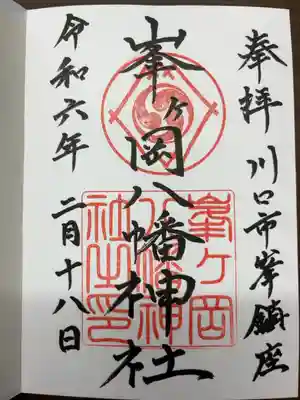 奉拝 川口市峯鎮座
峯ヶ岡八幡神社
令和六年 二月十八日
峯ヶ岡
八幡神
社之印